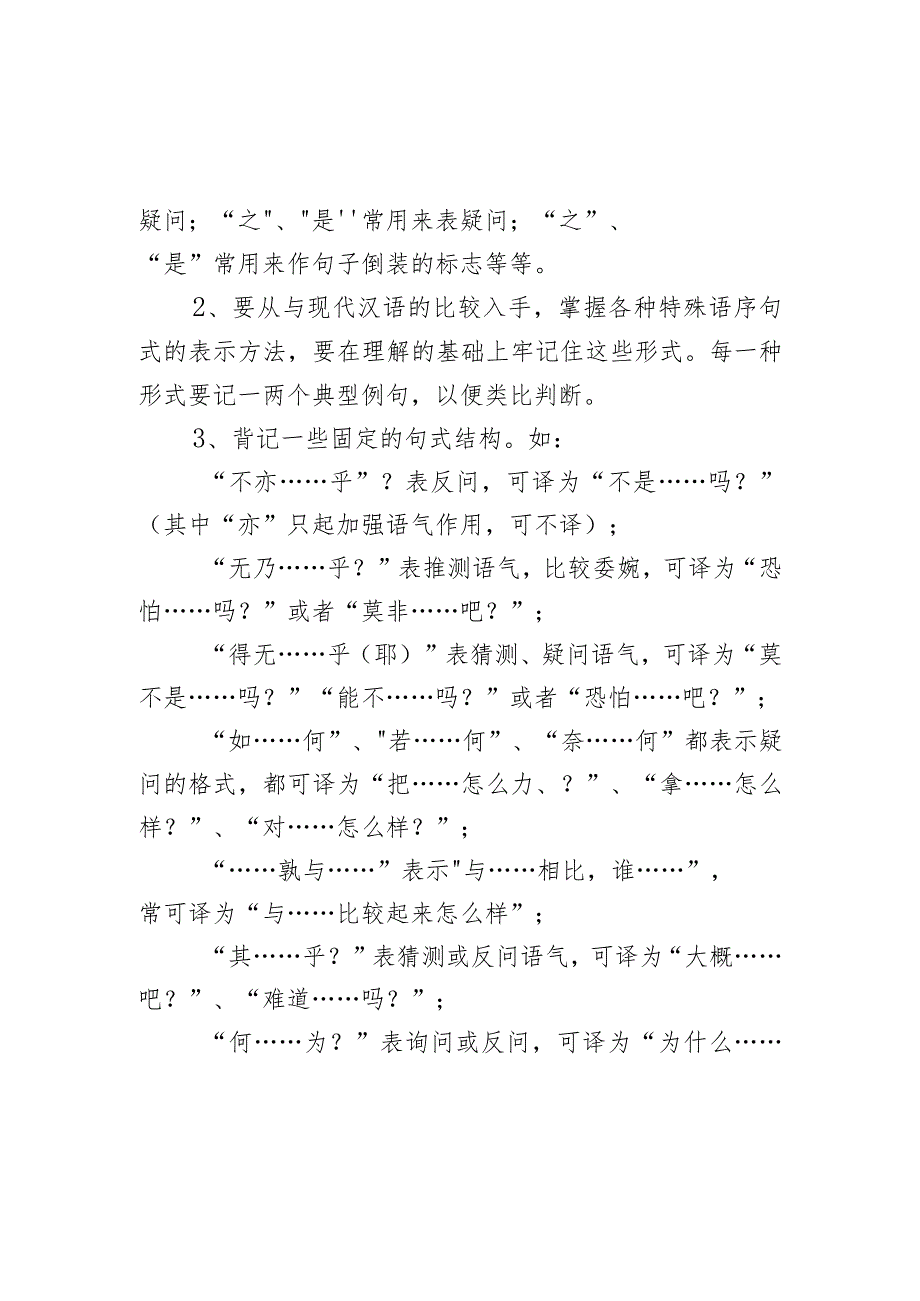 疑问；“之"、"是''常用来表疑问；“之”、
“是”常用来作句子倒装的标志等等。
2、要从与现代汉语的比较入手，掌握各种特殊语序句
式的表示方法，要在理解的基础上牢记住这些形式。每一种
形式要记一两个典型例句，以便类比判断。
3、背记一些固定的句式结构。如：
“不亦……乎”？表反问，可译为“不是……吗？”
（其中“亦”只起加强语气作用，可不译）；
“无乃……乎？”表推测语气，比较委婉，可译为“恐
怕……吗？”或者“莫非……吧？”；
“得无……乎（耶）”表猜测、疑问语气，可译为“莫
不是……吗？”“能不……吗？”或者“恐怕……吧？”；
“如……何”、"若……何”、“奈……何”都表示疑
问的格式，都可译为“把……怎么力、？”、“拿……怎么
样？”、“对……怎么样？”；
“……孰与……”表示"与……相比，谁……”，
常可译为“与……比较起来怎么样”；
“其……乎？”表猜测或反问语气，可译为“大概……
吧？”、“难道……吗？”；
“何……为？”表询问或反问，可译为“为什么……